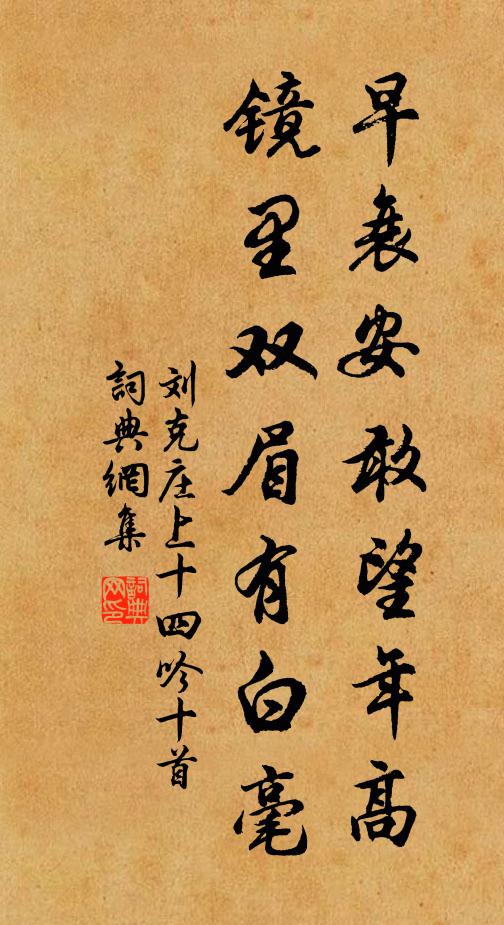 早衰安敢望年高
镜里双眉有白毫
刘克庄上十四吟十首
詞典網集
詞典网印